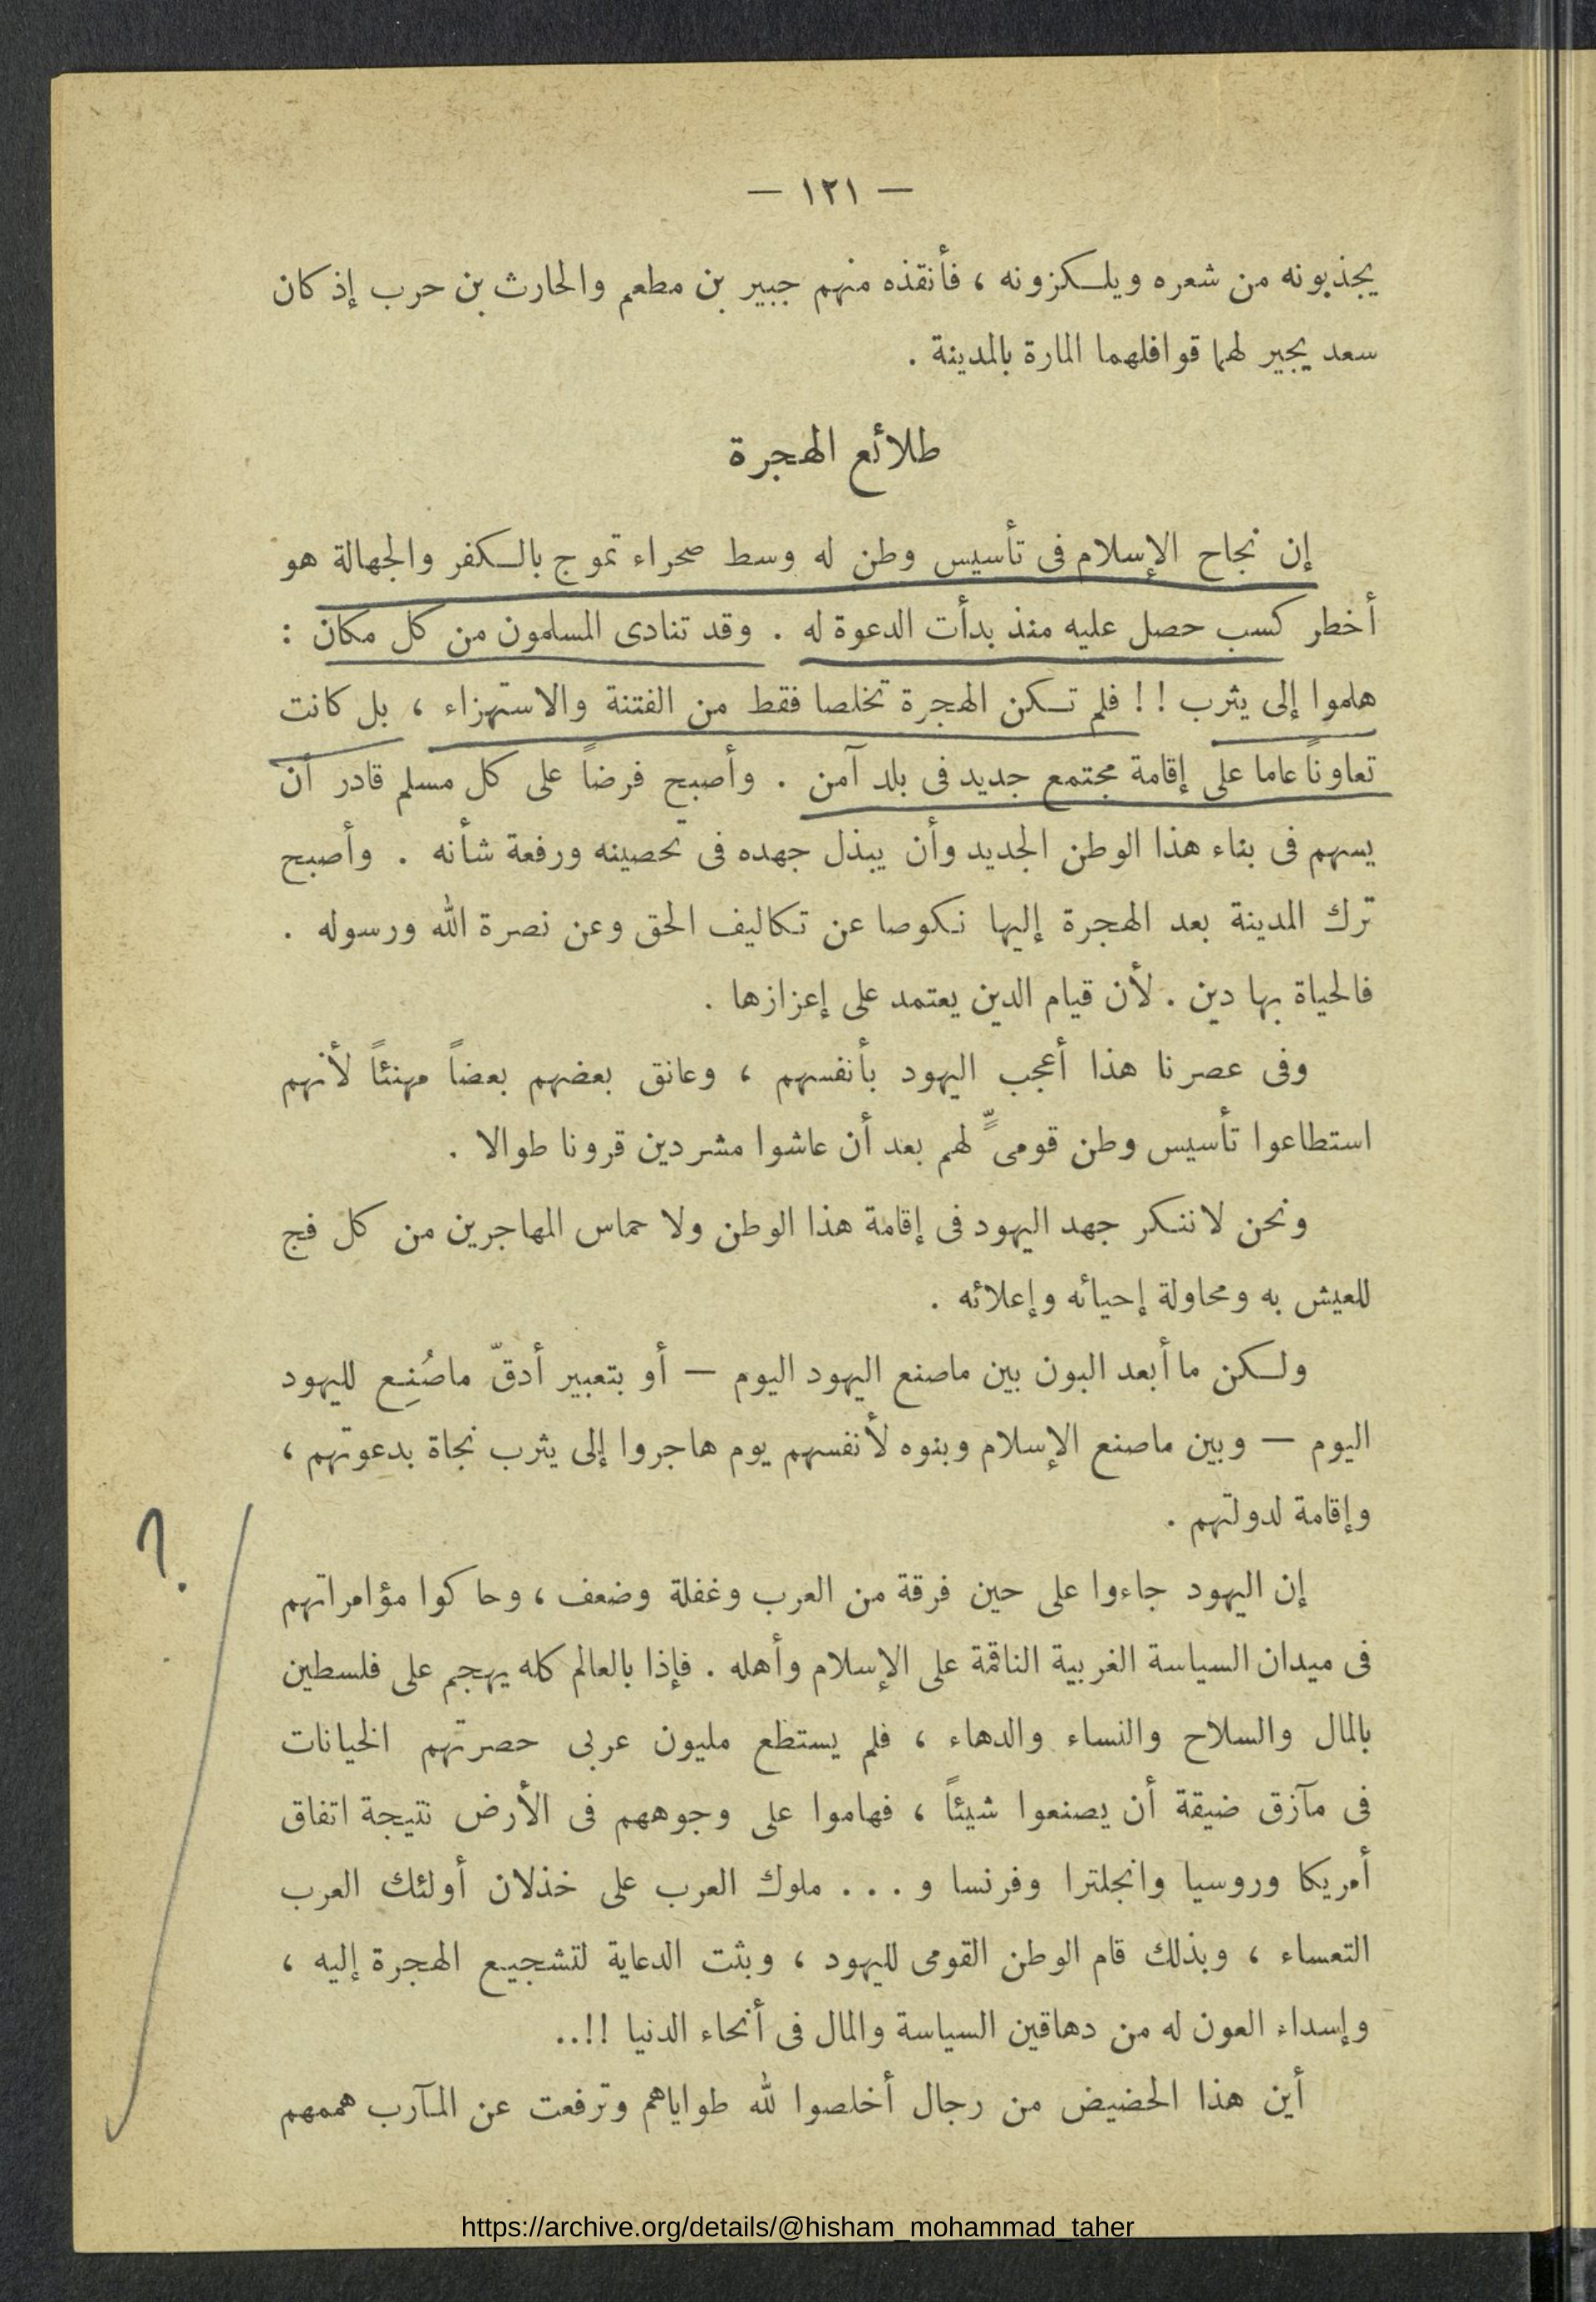 — ١٢١ —
يجذبونه من شعره ويلكزونه ، فأنقذه منهم جبير بن مطعم والحارث بن حرب إذ كان
سعد يجير لهما قوافلهما المارة بالمدينة .
طلائع الهجرة
إن نجاح الإسلام فى تأسيس وطن له وسط صحراء تموج بالكفر والجهالة هو
أخطر كسب حصل عليه منذ بدأت الدعوة له . وقد تنادى المسلمون من كل مكان :
هلموا إلى يثرب ! ! فلم تكن الهجرة تخلصا فقط من الفتنة والاستهزاء ، بل كانت
تعاوناً عاما على إقامة مجتمع جديد فى بلد آمن . وأصبح فرضاً على كل مسلم قادر أن
يسهم فى بناء هذا الوطن الجديد وأن يبذل جهده فى تحصينه ورفعة شأنه . وأصبح
ترك المدينة بعد الهجرة إليها نكوصا عن تكاليف الحق وعن نصرة الله ورسوله .
فالحياة بها دين . لأن قيام الدين يعتمد على إعزازها .
وفى عصرنا هذا أعجب اليهود بأنفسهم ، وعانق بعضهم بعضاً مهنئاً لأنهم
استطاعوا تأسيس وطن قومىٍّ لهم بعد أن عاشوا مشردين قرونا طوالا .
ونحن لا ننكر جهد اليهود فى إقامة هذا الوطن ولا حماس المهاجرين من كل فج
للعيش به ومحاولة إحيائه وإعلائه .
ولكن ما أبعد البون بين ماصنع اليهود اليوم — أو بتعبير أدقّ ماصُنِع لليهود
اليوم — وبين ماصنع الإسلام وبنوه لأنفسهم يوم هاجروا إلى يثرب نجاة بدعوتهم ،
وإقامة لدولتهم .
إن اليهود جاءوا على حين فرقة من العرب وغفلة وضعف ، وحاكوا مؤامراتهم
فى ميدان السياسة الغربية الناقمة على الإسلام وأهله . فإذا بالعالم كله يهجم على فلسطين
بالمال والسلاح والنساء والدهاء ، فلم يستطع مليون عربى حصرتهم الخيانات
فى مآزق ضيقة أن يصنعوا شيئاً ، فهاموا على وجوههم فى الأرض نتيجة اتفاق
أمريكا وروسيا وانجلترا وفرنسا و . . . ملوك العرب على خذلان أولئك العرب
التعساء ، وبذلك قام الوطن القومى لليهود ، وبثت الدعاية لتشجيع الهجرة إليه ،
وإسداء العون له من دهاقين السياسة والمال فى أنحاء الدنيا !!..
؟
أين هذا الحضيض من رجال أخلصوا لله طواياهم وترفعت عن المآرب هممهم
https://archive.org/details/@hisham_mohammad_taher